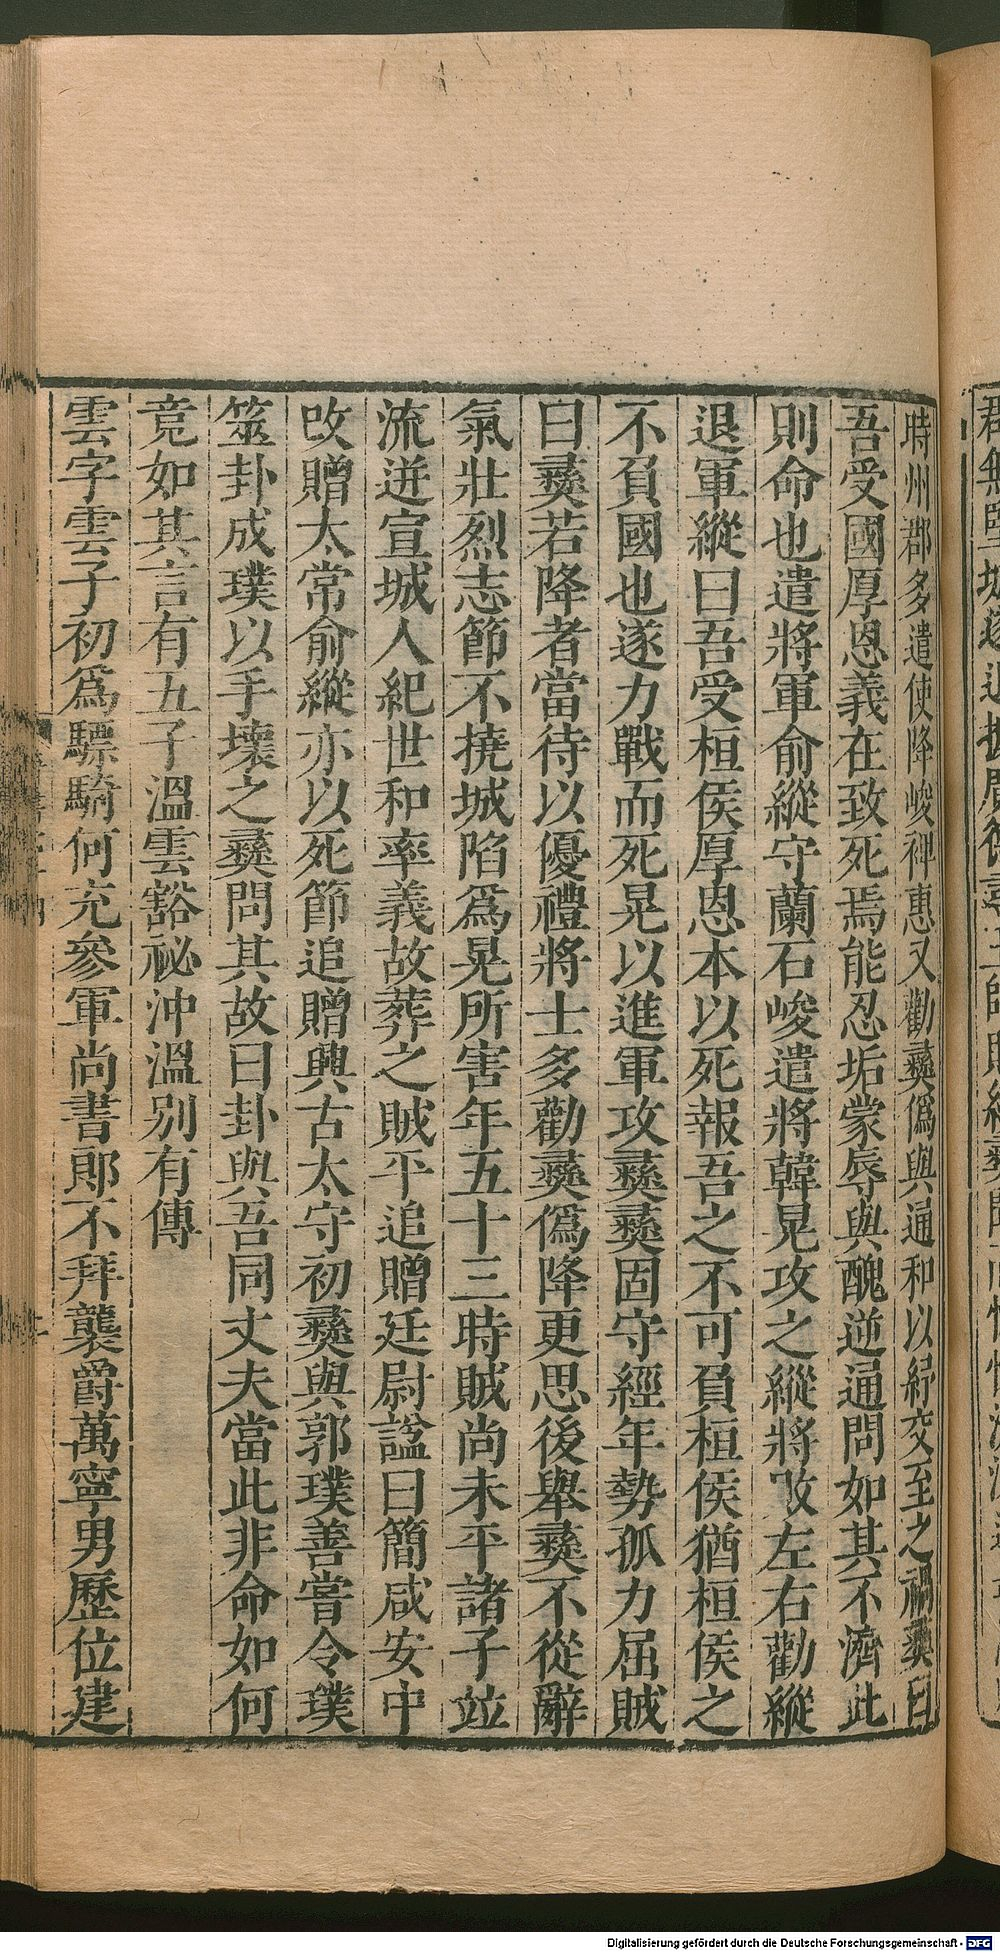 時州郡多遣使降峻裨惠又勸彝僞與通和以紓交至之禍彝曰
吾受國厚恩義在致死焉能忍垢蒙辱與醜逆通問如其不濟此
則命也遣將軍俞縱守蘭石峻遣將韓晃攻之縱將敗左右勸縱
退軍縱曰吾受桓侯厚恩本以死報吾之不可負桓侯猶桓侯之
不負國也遂力戰而死晃以進軍攻彝彝固守經年勢孤力屈賊
曰彝若降者當待以優禮將士多勸彝僞降更思後舉彝不從辭
氣壯烈志節不撓城陷爲晃所害年五十三時賊尚未平諸子竝
流迸宣城人紀世和率義故葬之賊平追贈廷尉諡曰簡咸安中
改贈太常俞縱亦以死節追贈興古太守初彝與郭璞善嘗令璞
筮卦成璞以手壞之彝問其故曰卦與吾同丈夫當此非命如何
竟如其言有五子溫雲豁祕沖溫别有傳
雲字雲子初爲驃騎何充參軍尚書郎不拜襲爵萬寧男歷位建
Digitalisierung gefördert durch die Deutsche Forschungsgemeinschaft - DFG